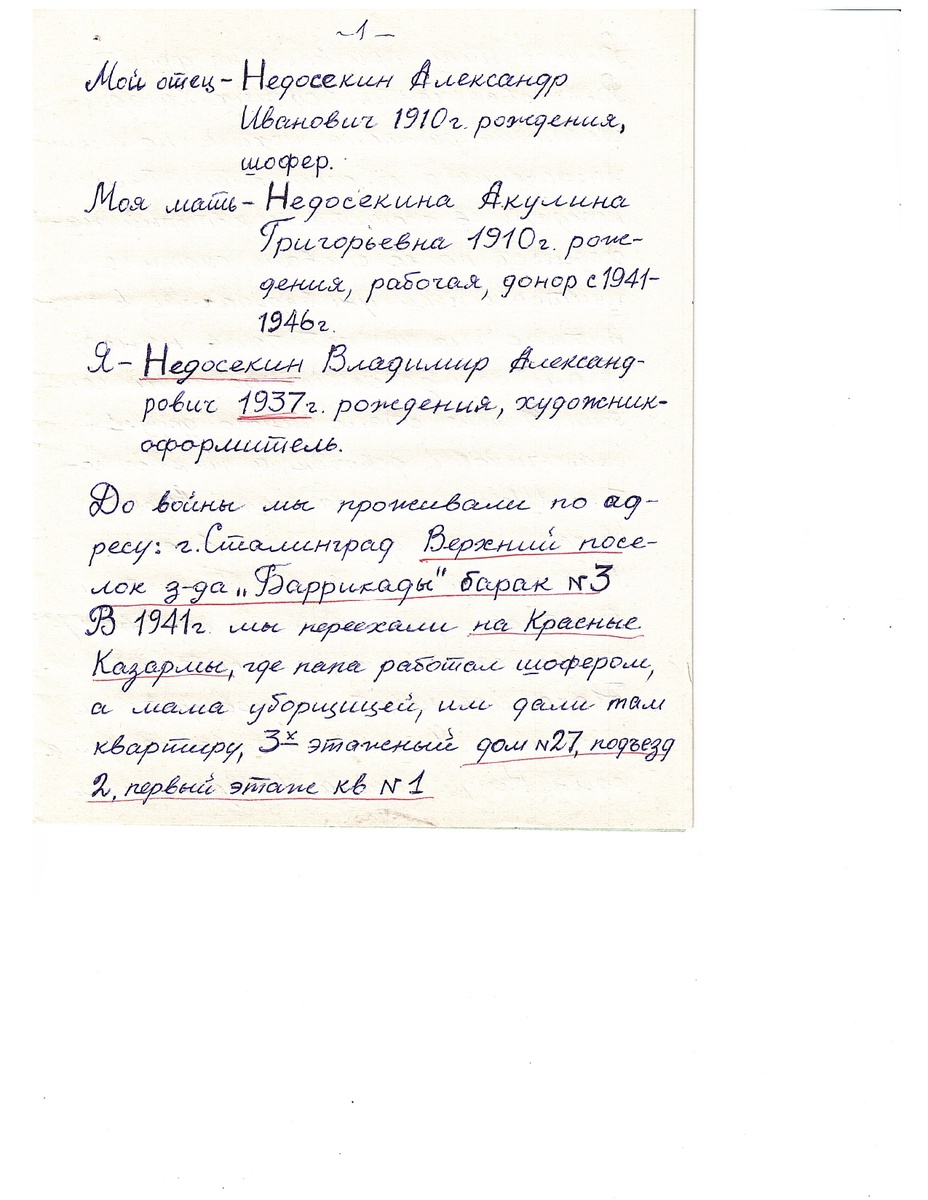 ~1—
Мой отец – Недосекин Александр
Иванович 1910г. рождения,
шофер.
Моя мать – Недосекина Акулина
Григорьевна 1910г. рож-
дения, рабочая, донор с 1941-
1946г.
Я – Недосекин Владимир Александ-
рович 1937г. рождения, художник-
оформитель.
До войны мы проживали по ад-
ресу: г. Сталинград Верхний посе-
лок з-да „Баррикады" барак №3
В 1941г. мы переехали на Красные
Казармы, где папа работал шофером,
а мама уборщицей, им дали там
квартиру, 3х этажный дом №27, подъезд
2, первый этаж кв №1